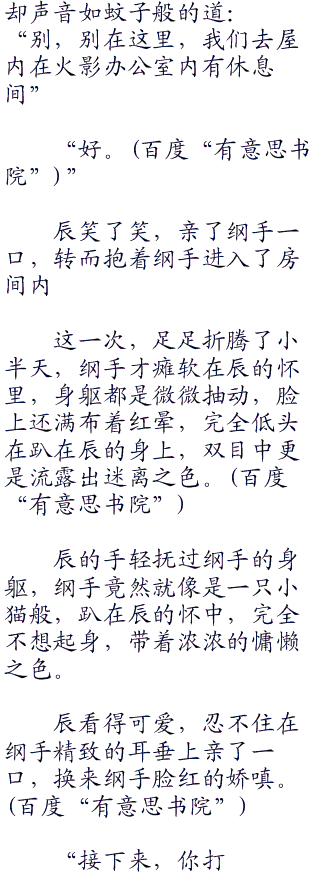 却声音如蚊子般的道：
“别，别在这里，我们去屋
内在火影办公室内有休息
间”
“好。(百度“有意思书
院”)”
辰笑了笑，亲了纲手一
口，转而抱着纲手进入了房
间内
这一次，足足折腾了小
半天，纲手才瘫软在辰的怀
里，身躯都是微微抽动，脸
上还满布着红晕，完全低头
在趴在辰的身上，双目中更
是流露出迷离之色。(百度
“有意思书院”)
辰的手轻抚过纲手的身
躯，纲手竟然就像是一只小
猫般，趴在辰的怀中，完全
不想起身，带着浓浓的慵懒
之色。
辰看得可爱，忍不住在
纲手精致的耳垂上亲了一
口，换来纲手脸红的娇嗔。
(百度“有意思书院”)
“接下来，你打